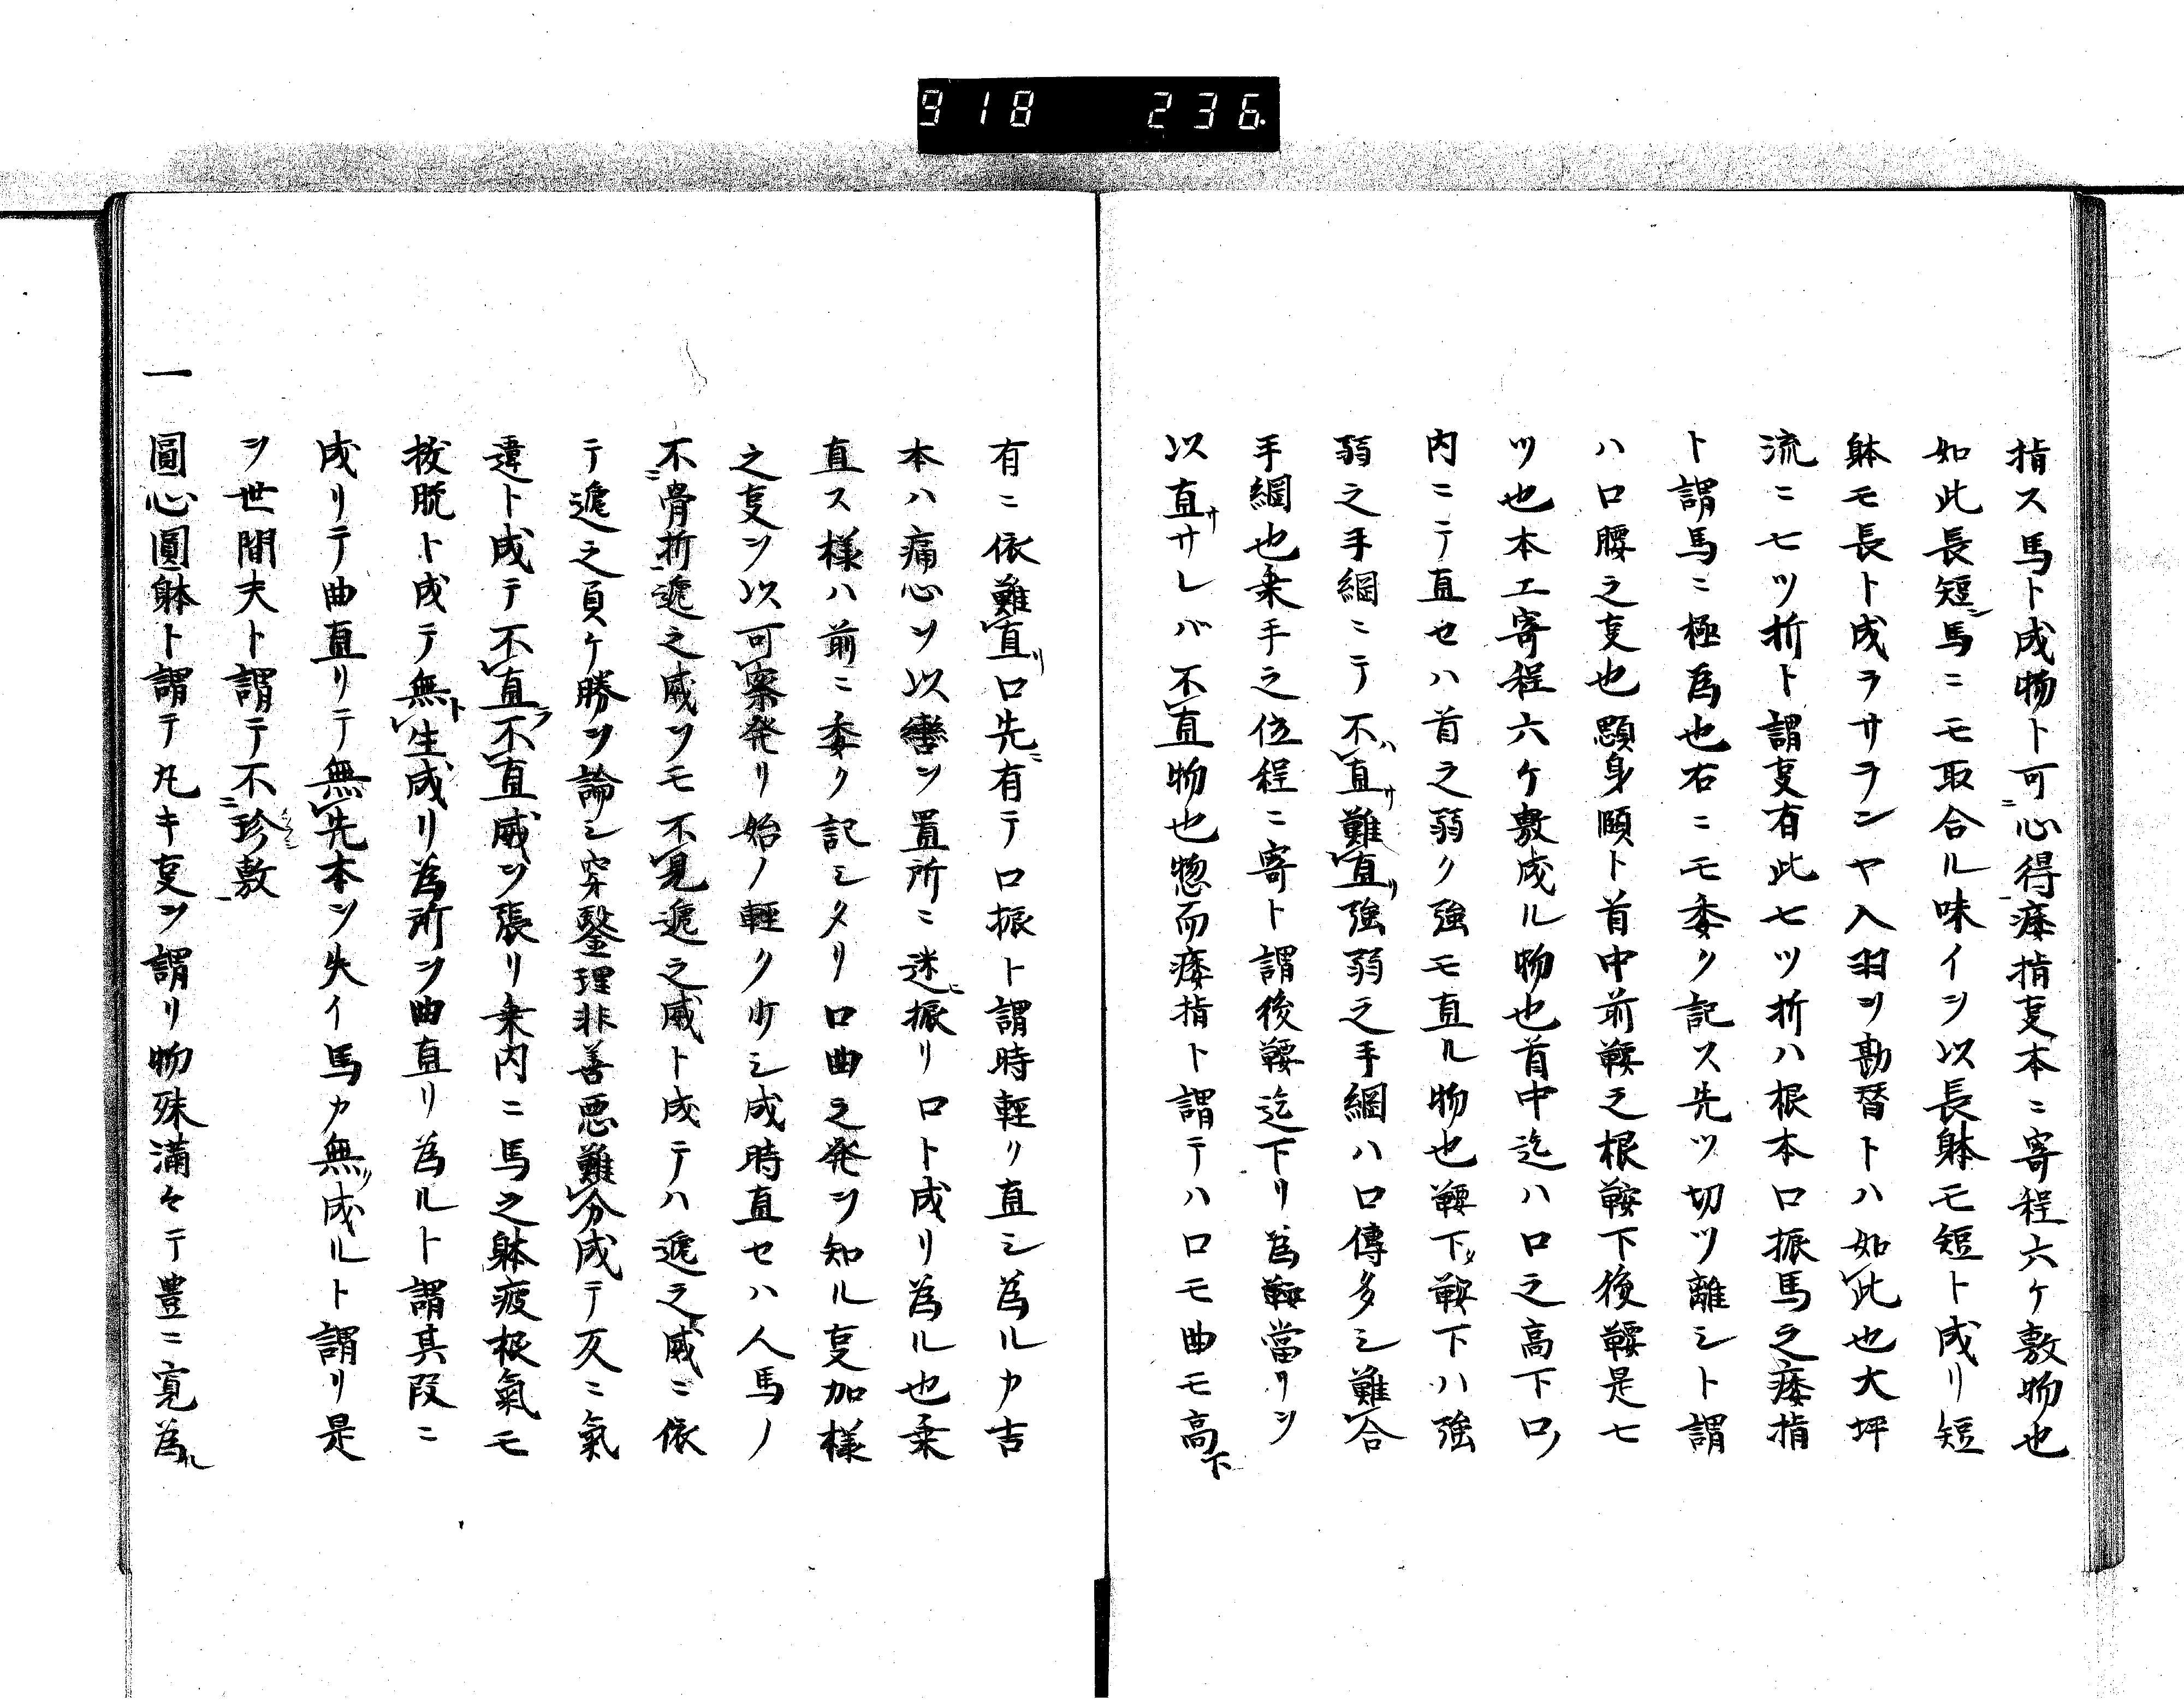 918 236.
指ス馬ト成物ト可ニ心得一痿指叓本ニ寄程六ケ敷物也
如此長短ノ馬ニモ取合ル味イヲ以長躰モ短ト成リ短
躰モ長ト成ラサラン ヤ入羽ヲ勘替トハ如此也大坪
流ニ七ツ折ト謂叓有此七ツ折ハ根本口振馬之痿指
ト謂馬ニ極為也右ニモ委ク記ス先ツ切ツ離シト謂
ハ口腰之叓也顋身頤ト首中前鞍之根鞍下後鞍是七
ツ也本エ寄程六ケ敷成ル物也首中迄ハ口之高下口ノ
内ニテ直セハ首之弱ク強モ直ル物也鞍下ノ鞍下ハ強
弱之手綱ニテ不ハ直サ難直リ強弱之手綱ハ口傳多シ難合
手綱也乗手之位程ニ寄ト謂後鞍迄下リ為鞍當リヲ
以直ササレバ不直物也惣而痿指ト謂テハ口モ曲モ高下
有ニ依難直リ口先ニ有テ口振ト謂時軽ク直シ為ルカ吉
本ハ痛心ヲ以轡ヲ置所ニ迷ニ振リ口ト成リ為ル也乗
直ス様ハ前ニ委ク記シタリ口曲之発ヲ知ル叓加様
之叓ヲ以可察発リ始ノ軽ク少シ成時直セハ人馬ノ
不ニ骨折一遞之威ヲモ不見遞之威ト成テハ遞之威ニ依
テ遞之負ケ勝ヲ論シ穿鑿理非善悪難分成テ互ニ氣
違ト成テ不直ラ不直威ヲ張リ乗内ニ馬之躰疲根氣モ
抜脱ト成テ無ト生成リ為所ヲ曲直リ為ルト謂其段ニ
成リテ曲直リテ無先本ヲ失イ馬カ無リ成ルト謂リ是
ヲ世間夫ト謂テ不ニ珍敷一
一 圓心圓躰ト謂テ丸キ叓ヲ謂リ物殊満々テ豊ニ寛為ル